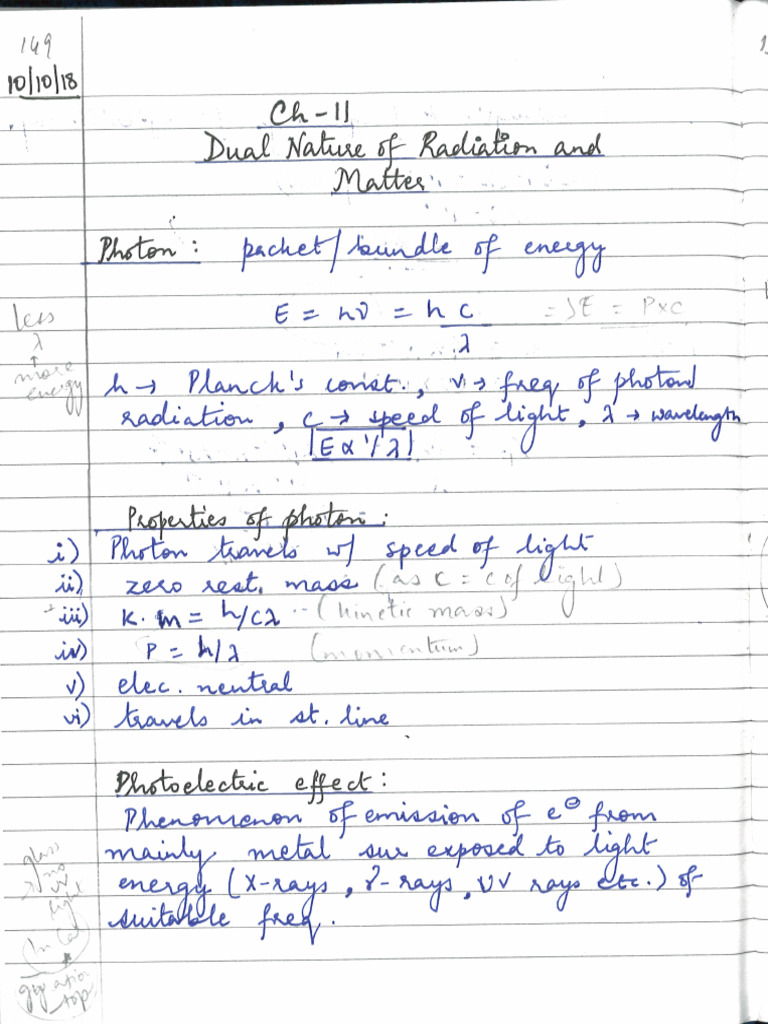 149
10/10/18
Ch-11
Dual Nature of Radiation and
Matter
Photon: packet/bundle of energy
E = hν = h c / λ => E = P×c
less
λ
↑
more
energy
h → Planck's const., ν → freq of photon/
radiation, c → speed of light, λ → wavelength
E ∝ 1/λ
Properties of photon:
i) Photon travels w/ speed of light
ii) zero rest. mass (as c = c of light)
iii) K. m = h/cλ (kinetic mass)
iv) P = h/λ (momentum)
v) elec. neutral
vi) travels in st. line
Photoelectric effect:
Phenomenon of emission of e⊖ from
mainly metal sur exposed to light
energy (X-rays, γ-rays, UV rays etc.) of
suitable freq.
glass
no
UV
light